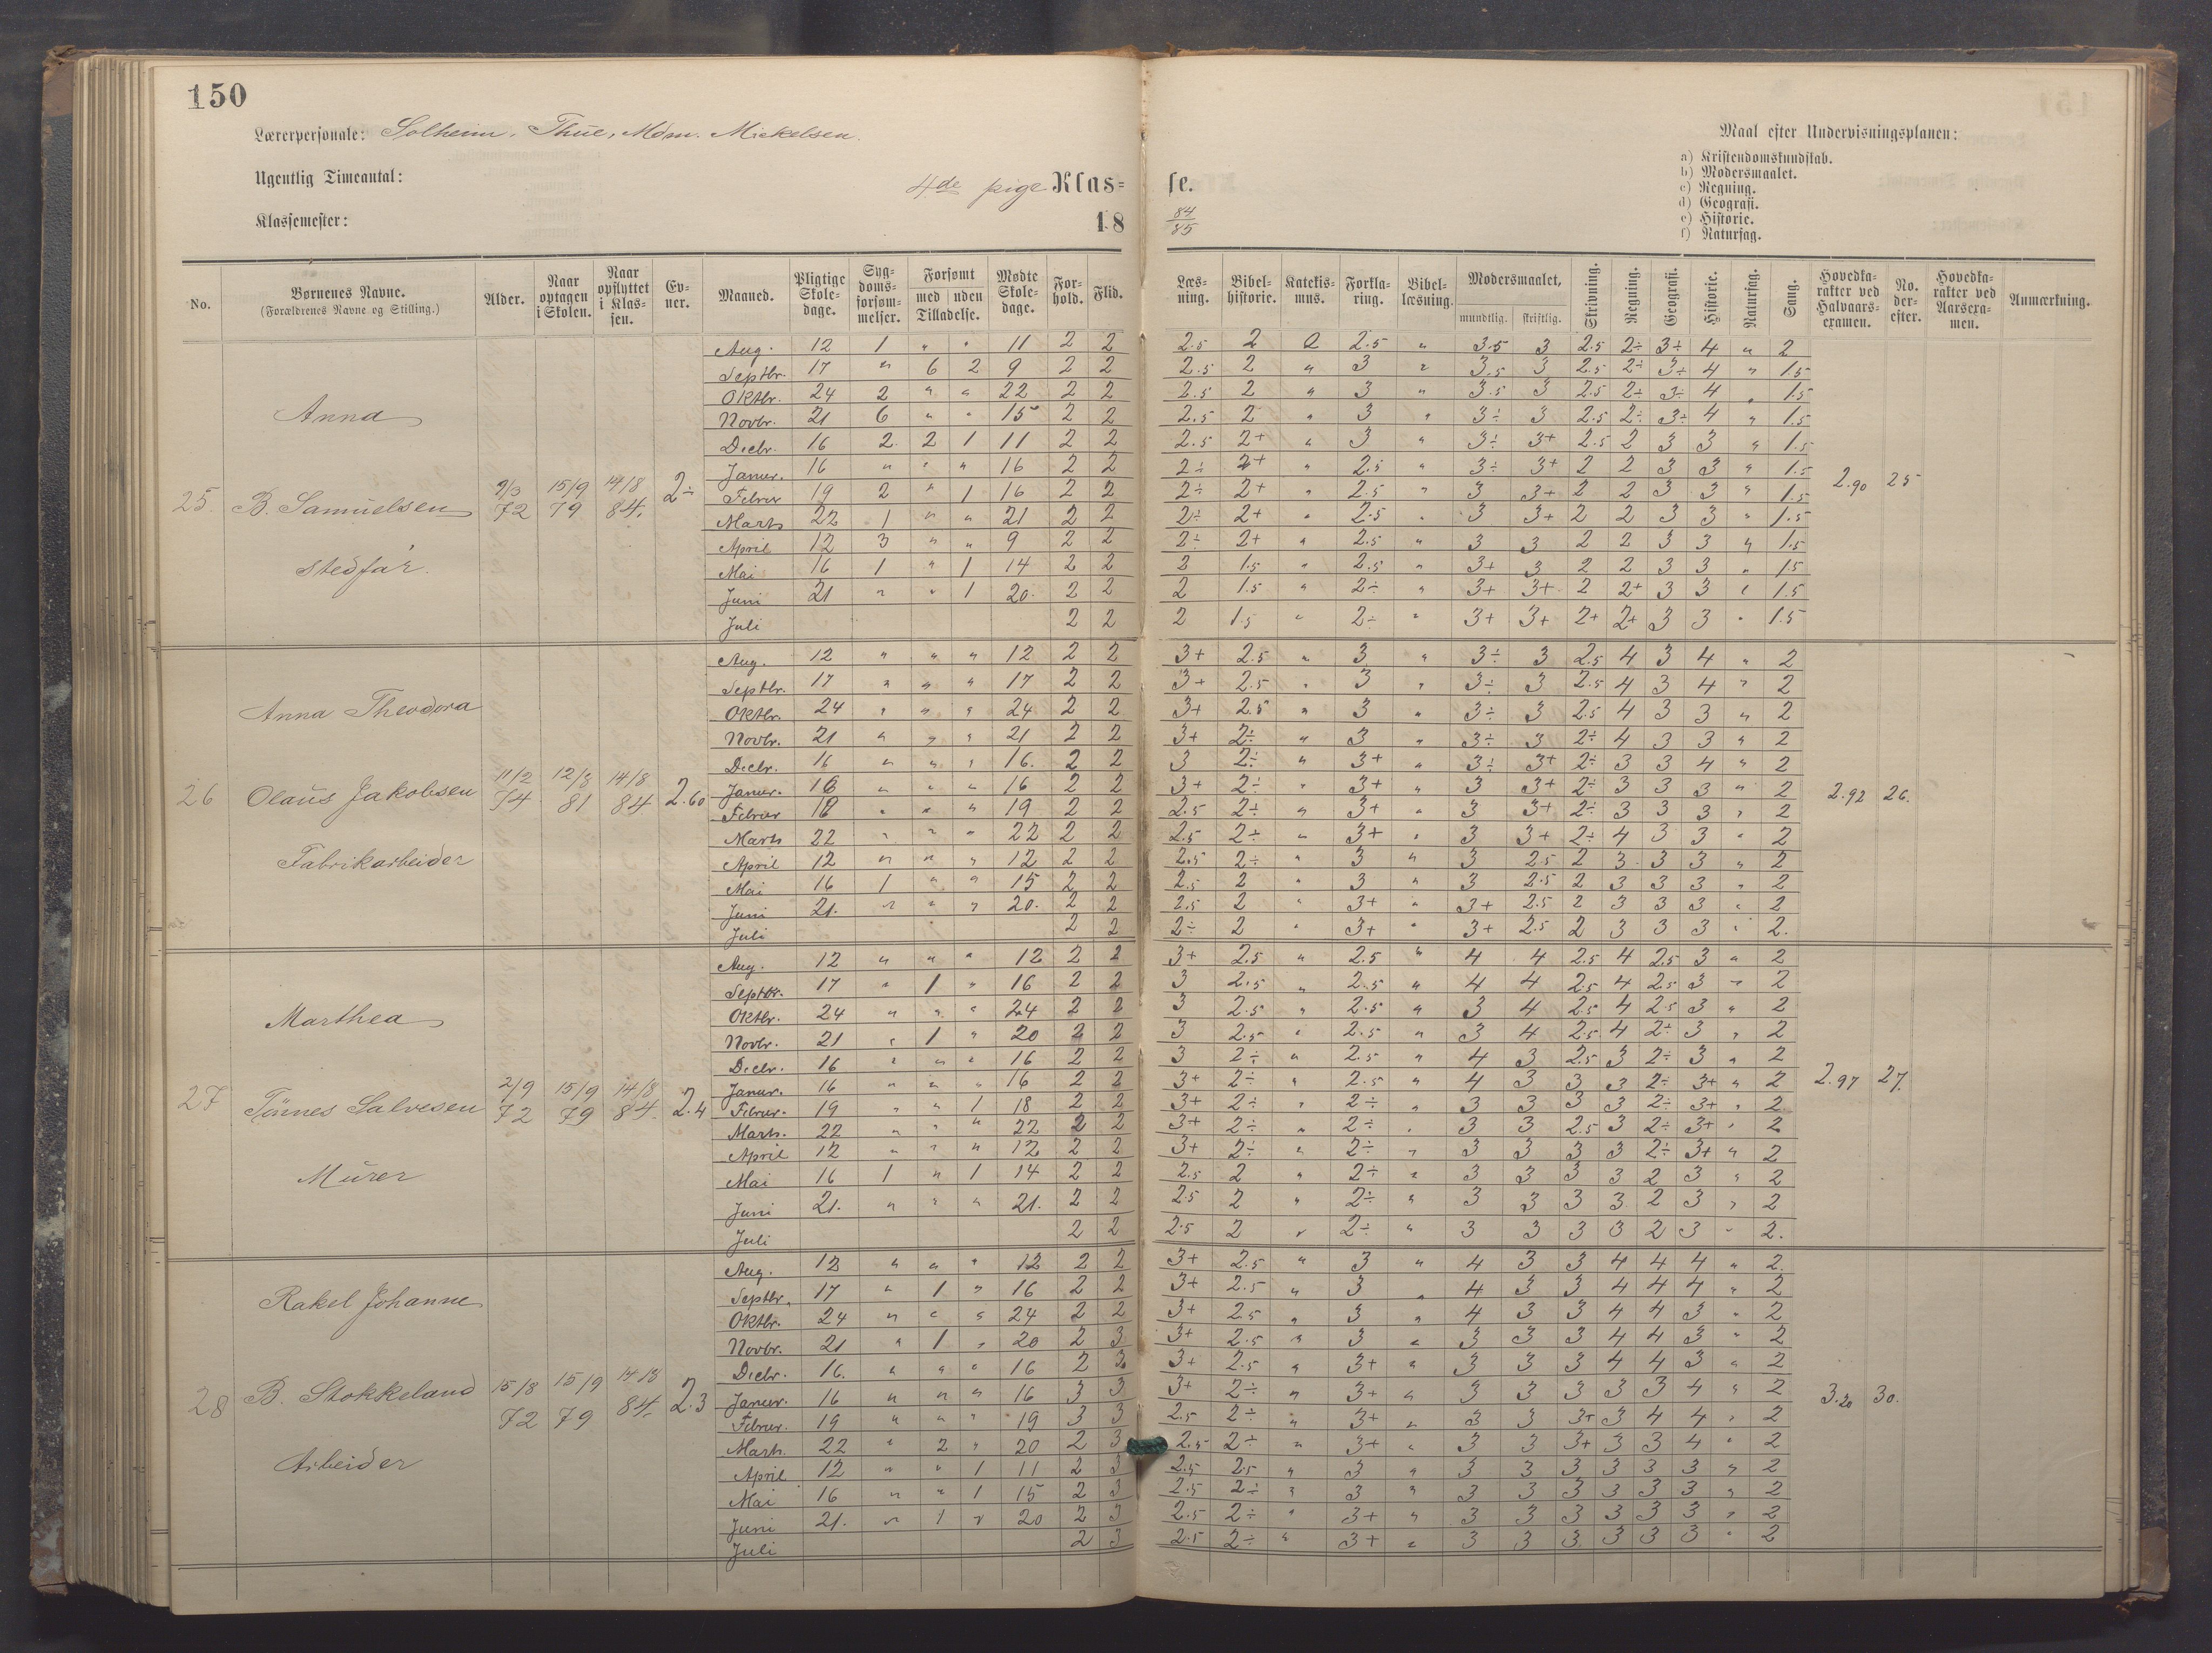 150
Lærerpersonale: Solheim, Thue, Mdm. Mickelsen.
Ugentlig Timeantal:
4de pige Klas= se.
Klassemester:
18 84/85
Maal efter Undervisningsplanen:
a) Kristendomskundskab.
b) Modersmaalet.
c) Regning.
d) Geografi.
e) Historie.
f) Naturfag.
No. | Børnenes Navne. (Forældrenes Navne og Stilling.) | Alder. | Naar optagen i Skolen. | Naar opflyttet i Klassen. | Evner. | Maaned. | Pligtige Skoledage. | Sygdomsforsømmelser. | Forsømt med uden Tilladelse. | Mødte Skoledage. | Forhold. | Flid. | Læsning. | Bibelhistorie. | Katekismus. | Forklaring. | Bibellæsning. | Modersmaalet, mundtlig. skriftlig. | Skrivning. | Regning. | Geografi. | Historie. | Naturfag. | Sang. | Hovedkarakter ved Halvaarsexamen. | No. derefter. | Hovedkarakter ved Aarsexamen. | Anmærkning.
25. Anna B. Samuelsen stedfar. 9/3 72 15/9 79 14/8 84. 2÷ 2.90 25
Aug. 12 1 " " 11 2 2 2.5 2 2 2.5 " 3.5 3 2.5 2÷ 3÷ 4 " 2
Septbr. 17 " 6 2 9 2 2 2.5 2 " 3 " 3.5 3 2.5 2÷ 3÷ 4 " 1.5
Oktbr. 24 2 " " 22 2 2 2.5 2 " 3 " 3.5 3 2.5 2÷ 3÷ 4 " 1.5
Novbr. 21 6 " " 15 2 2 2.5 2 " 3 " 3÷ 3 2.5 2÷ 3÷ 4 " 1.5
Decbr. 16 2. 2 1 11 2 2 2.5 2+ " 3 " 3÷ 3+ 2.5 2 3 3 " 1.5
Januar. 16 " " " 16 2 2 2÷ 2+ " 2.5 " 3÷ 3+ 2 2 3 3 " 1.5
Febrar 19 2 " 1 16 2 2 2÷ 2+ " 2.5 " 3 3+ 2 2 3 3 " 1.5
Marts 22 1 " " 21 2 2 2÷ 2+ " 2.5 " 3 3+ 2 2 3 3 " 1.5
April 12 3 " " 9 2 2 2÷ 2+ " 2.5 " 3 3 2 2 3 3 " 1.5
Mai 16 1 " 1 14 2 2 2 1.5 " 2.5 " 3+ 3 2 2 3 3 " 15
Juni 21 " " 1 20. 2 2 2 1.5 " 2÷ " 3+ 3+ 2 2+ 3 3 " 1.5
Juli 2 2 2 1.5 " 2÷ " 3+ 3+ 2+ 2+ 3 3 " 1.5
26 Anna Theodora Olaus Jakobsen Fabrikarbeider 11/2 74 12/8 81 14/8 84 2.60 2.92 26.
Aug. 12 " " " 12 2 2 3+ 2.5 " 3 " 3÷ 3 2.5 4 3 4 " 2
Septbr. 17 " " " 17 2 2 3+ 2.5 " 3 " 3÷ 3 2.5 4 3 4 " 2
Oktbr. 24 " " " 24 2 2 3+ 2.5 " 3 " 3÷ 3 2.5 4 3 3 " 2
Novbr. 21 " " " 21 2 2 3+ 2÷ " 3 " 3÷ 3 2÷ 4 3 3 " 2
Decbr. 16 " " " 16. 2 2 3 2÷ " 3+ " 3÷ 3+ 2÷ 3 3 4 " 2
Januar. 16 " " " 16 2 2 3+ 2÷ " 3+ " 3 3+ 2÷ 3 3 3 " 2
Febrar 18 " " " 19 2 2 2.5 2÷ " 3+ " 3 3+ 2÷ 3 3 3 " 2
Marts 22 " " " 22 2 2 2.5 2÷ " 3+ " 3 3+ 2÷ 4 3 3 " 2
April 12 " " " 12 2 2 2.5 2÷ " 3 " 3 2.5 2 3 3 3 " 2
Mai 16 1 " " 15 2 2 2.5 2 " 3 " 3 2.5 2 3 3 3 " 2
Juni 21. " " " 20. 2 2 2.5 2 " 3+ " 3+ 2.5 2 3 3 3 " 2
Juli 2 2 2÷ 2 " 3+ " 3+ 2.5 2 3 3 3 " 2.
27 Marthea Tønnes Salvesen Murer 2/9 72 15/9 79 14/8 84. 2.4 2.97 27.
Aug. 12 " " " 12 2 2 3+ 2.5 " 2.5 " 4 4 2.5 4 2.5 3 " 2
Septbr. 17 " 1 " 16 2 2 3 2.5 " 2.5 " 4 4 2.5 4 2.5 3 " 2
Oktbr. 24 " " " 24 2 2 3 2.5 " 2.5 " 3 4 2.5 4 2.5 3 " 2
Novbr. 21 " 1 " 20 2 2 3 2.5 " 2.5 " 3 4 2.5 4 2÷ 3 " 2
Decbr. 16 " " " 16 2 2 3 2÷ " 2.5 " 4 3 2.5 3 2÷ 3 " 2
Januar. 16 " " " 16 2 2 3+ 2÷ " 2.5 " 4 3 3 3 2÷ 3+ " 2
Febrar. 19 " " 1 18 2 2 3+ 2÷ " 2÷ " 3 3 3 3 2÷ 3+ " 2
Marts. 22 " " " 22 2 2 3+ 2÷ " 2÷ " 3 3 2.5 3 2÷ 3+ " 2
April 12 " " " 12 2 2 3+ 2÷ " 2÷ " 3 3 3 3 2÷ 3+ " 2
Mai 16 1 " 1 14 2 2 2.5 2 " 2÷ " 3 3 3 3 2 3 " 2
Juni 21. " " " 21. 2 2 2.5 2 " 2÷ " 3 3 3 3 2 3 " 2
Juli 2 2 2.5 2 " 2÷ " 3 3 3 3 2 3 " 2.
28 Rakel Johanne B. Stokkeland Arbeider 15/8 72 15/9 79 14/8 84. 2.3 3.20 30.
Aug. 12 " " " 12 2 2 3+ 2.5 " 3 " 4 3 3 4 4 4 " 2.
Septbr. 17 " 1 " 16 2 2 3+ 2.5 " 3 " 4 3 3 4 4 4 " 2
Oktbr. 24 " " " 24 2 2 3+ 2.5 " 3 " 4 3 3 4 4 3 " 2
Novbr. 21 " 1 " 20 2 3 3+ 2.5 " 3 " 3 3 3 4 4 3 " 2
Decbr. 16. " " " 16 2 3 3+ 2.5 " 3+ " 3 3 3 4 4 3 " 2
Januar. 16 " " " 16 3 3 3+ 2÷ " 3+ " 3 3 3 3 3 4 " 2
Febrar. 19 " " " 19 3 3 2.5 2÷ " 3+ " 3 3 3+ 3 4 4 " 2
Marts. 22 " 2 " 20 2 3 2.5 2÷ " 3+ " 3 3 3+ 3 3 4 " 2
April 12 " " 1 11 2 3 2.5 2.5 " 3 " 3 3 3 3 3 3 " 2
Mai 16 " " 1 15 2 3 2.5 2÷ " 3 " 3 3 3 3 3 3 " 2
Juni 21. " 1 " 20 2 3 2.5 2÷ " 3+ " 3 3 3 3 3 3 " 2
Juli 2 3 2.5 2÷ " 3+ " 3 3 3 3 3 3 " 2